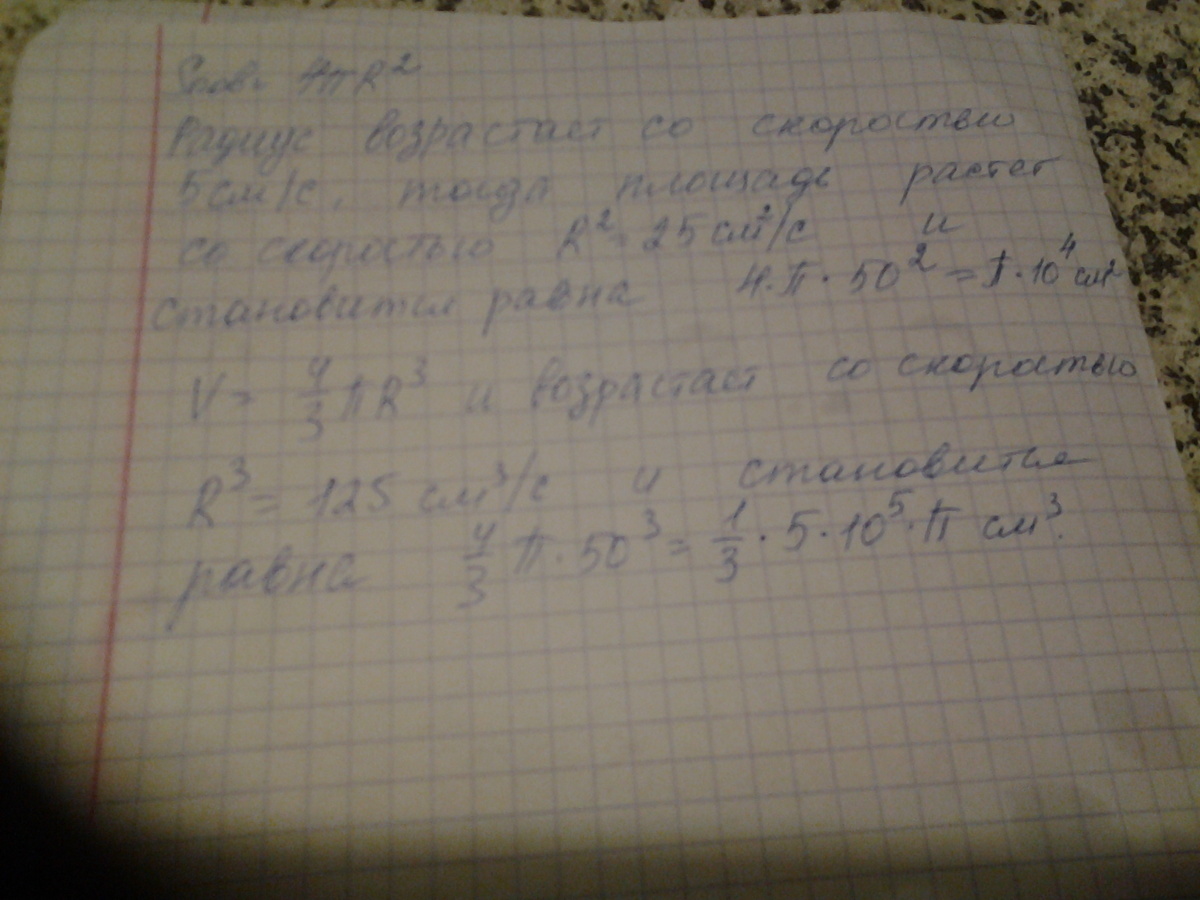 Sпов. 4πR²
Радиус возрастает со скоростью
5см/с, тогда площадь растет
со скоростью R² = 25 см²/с и
становится равна 4·π·50² = π·10⁴ см²
V = 4/3 πR³ и возрастает со скоростью
R³ = 125 см³/с и становится
равна 4/3 π·50³ = 1/3·5·10⁵·π см³.